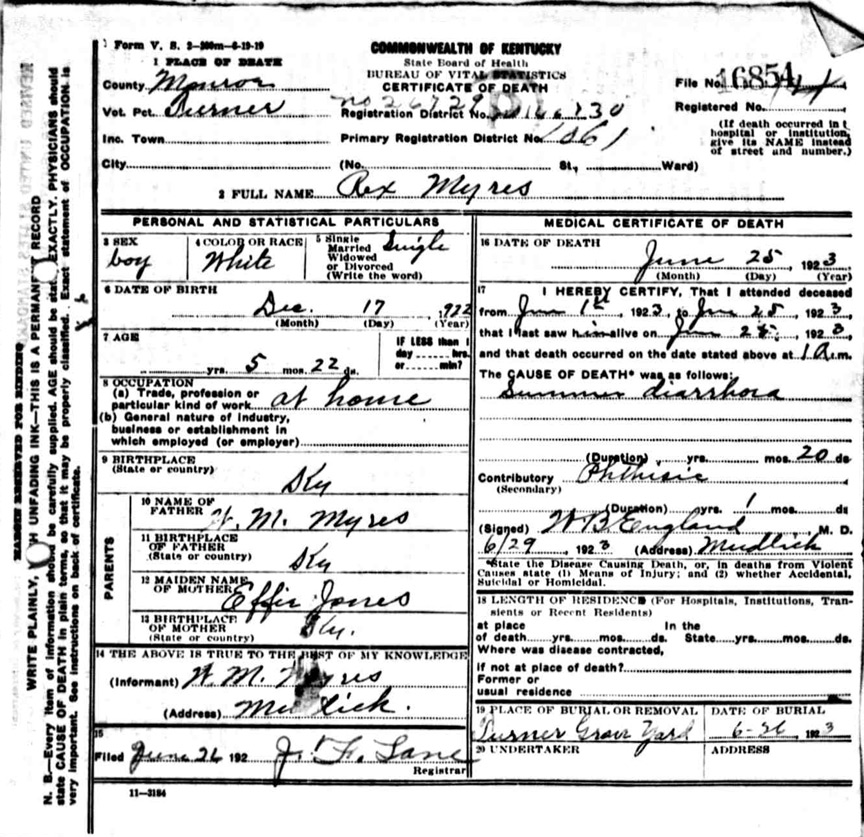 Form V. S. 2-300m-6-19-19
COMMONWEALTH OF KENTUCKY
State Board of Health
BUREAU OF VITAL STATISTICS
CERTIFICATE OF DEATH
1 PLACE OF DEATH
County Monroe
File No. 16854
Vot. Pct. Turner
Registration District No.
Registered No.
Inc. Town
Primary Registration District No. 1061
(If death occurred in
hospital or institution,
give its NAME instead
of street and number.)
City (No. St., Ward)
2 FULL NAME Rex Myres
PERSONAL AND STATISTICAL PARTICULARS
3 SEX
boy
4 COLOR OR RACE
White
5 Single
Married
Widowed
or Divorced
(Write the word)
Single
6 DATE OF BIRTH
Dec. 17 , 922
(Month) (Day) (Year)
7 AGE
yrs. 5 mos. 22 ds.
IF LESS than 1
day hrs.
or min?
8 OCCUPATION
(a) Trade, profession or
particular kind of work at home
(b) General nature of industry,
business or establishment in
which employed (or employer)
9 BIRTHPLACE
(State or country)
Ky
PARENTS
10 NAME OF
FATHER W. M. Myres
11 BIRTHPLACE
OF FATHER
(State or country)
Ky
12 MAIDEN NAME
OF MOTHER Effie Jones
13 BIRTHPLACE
OF MOTHER
(State or country)
Ky.
14 THE ABOVE IS TRUE TO THE BEST OF MY KNOWLEDGE
(Informant) W. M. Myres
(Address) Mudlick.
15
Filed June 26 192 J. F. Lane
Registrar
11-3184
MEDICAL CERTIFICATE OF DEATH
16 DATE OF DEATH
June 25 , 1923
(Month) (Day) (Year)
17 I HEREBY CERTIFY, That I attended deceased
from Jun 1st , 1923, to Jun 25 , 1923
that I last saw him alive on Jun 25 , 1923,
and that death occurred on the date stated above at 1 a.m.
The CAUSE OF DEATH* was as follows:
Summer diarrhora
(Duration) yrs. mos. 20 ds
Contributory Phthisic
(Secondary)
(Duration) yrs. 1 mos. ds
(Signed) W B England M. D.
6/29 , 1923 (Address) Mudlick
*State the Disease Causing Death, or, in deaths from Violent
Causes state (1) Means of Injury; and (2) whether Accidental,
Suicidal or Homicidal.
18 LENGTH OF RESIDENCE (For Hospitals, Institutions, Tran-
sients or Recent Residents)
at place In the
of death yrs. mos. ds. State yrs. mos. ds.
Where was disease contracted,
if not at place of death?
Former or
usual residence
19 PLACE OF BURIAL OR REMOVAL
Turner Grave Yard
DATE OF BURIAL
6-26 , 1923
20 UNDERTAKER
ADDRESS
MARGIN RESERVED FOR BINDING
WRITE PLAINLY, UNFADING INK—THIS IS A PERMANT RECORD
N. B.—Every item of information should be carefully supplied. AGE should be stat. EXACTLY. PHYSICIANS should
state CAUSE OF DEATH in plain terms, so that it may be properly classified. Exact statement of OCCUPATION is
very important. See instructions on back of certificate.